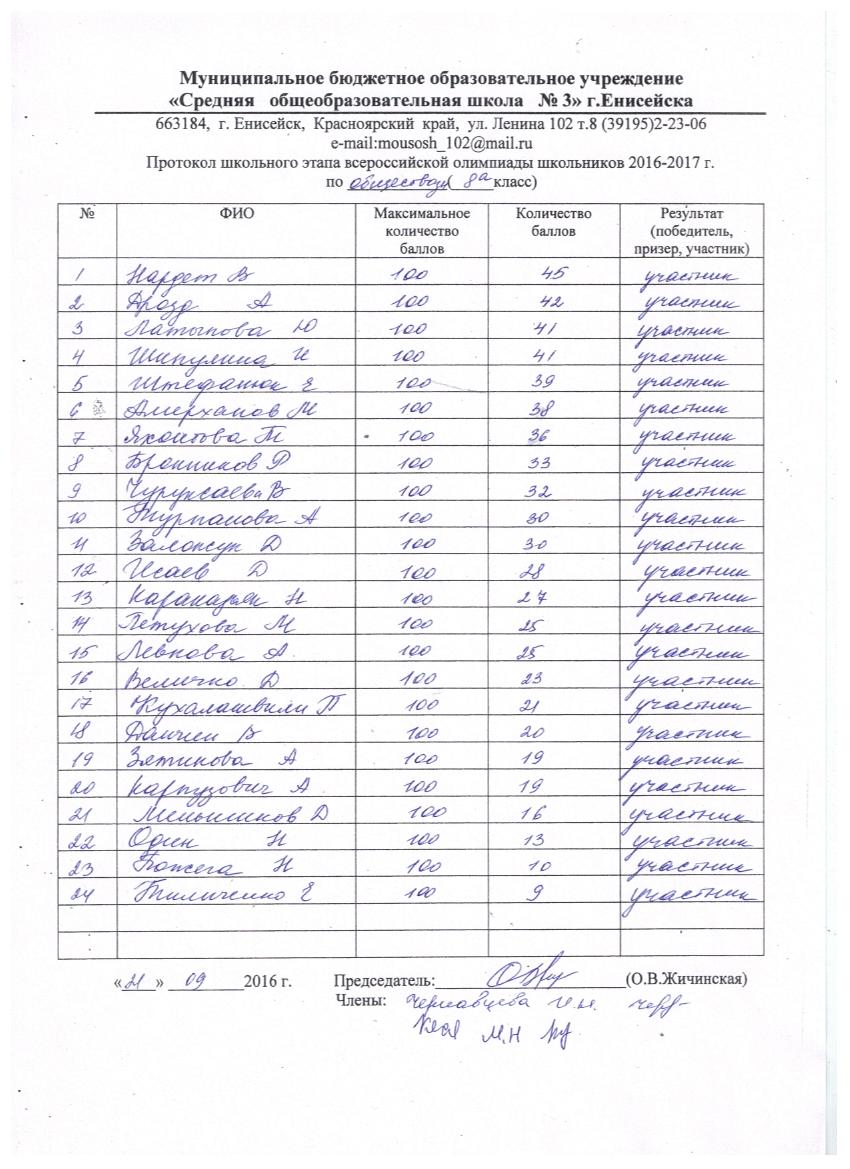 Муниципальное бюджетное образовательное учреждение
«Средняя общеобразовательная школа № 3» г.Енисейска
663184, г. Енисейск, Красноярский край, ул. Ленина 102 т.8 (39195)2-23-06
e-mail:mousosh_102@mail.ru
Протокол школьного этапа всероссийской олимпиады школьников 2016-2017 г.
по обществозн( 8а класс)
№ ФИО Максимальное количество баллов Количество баллов Результат (победитель, призер, участник)
1 Нардет В 100 45 участник
2 Дрозд А 100 42 участник
3 Латыпова Ю 100 41 участник
4 Шипулина И 100 41 участник
5 Штефанюк Е 100 39 участник
6 Амерханов М 100 38 участник
7 Яхонтова Т 100 36 участник
8 Бронников Р 100 33 участник
9 В 100 32 участник
10 Турпанова А 100 30 участник
11 Д 100 30 участник
12 Исаев Д 100 28 участник
13 Н 100 27 участник
14 Петухова М 100 25 участник
15 Левкова А. 100 25 участник
16 Величко Д 100 23 участник
17 Жухалашвили П 100 21 участник
18 В 100 20 участник
19 Зятикова А 100 19 участник
20 Карпузович А 100 19 участник
21 Меньшиков Д 100 16 участник
22 Один Н 100 13 участник
23 Н 100 10 участник
24 Тиличенко Е 100 9 участник
«21» 09 2016 г. Председатель: (О.В.Жичинская)
Члены: Чернавцева И.н.
М.Н